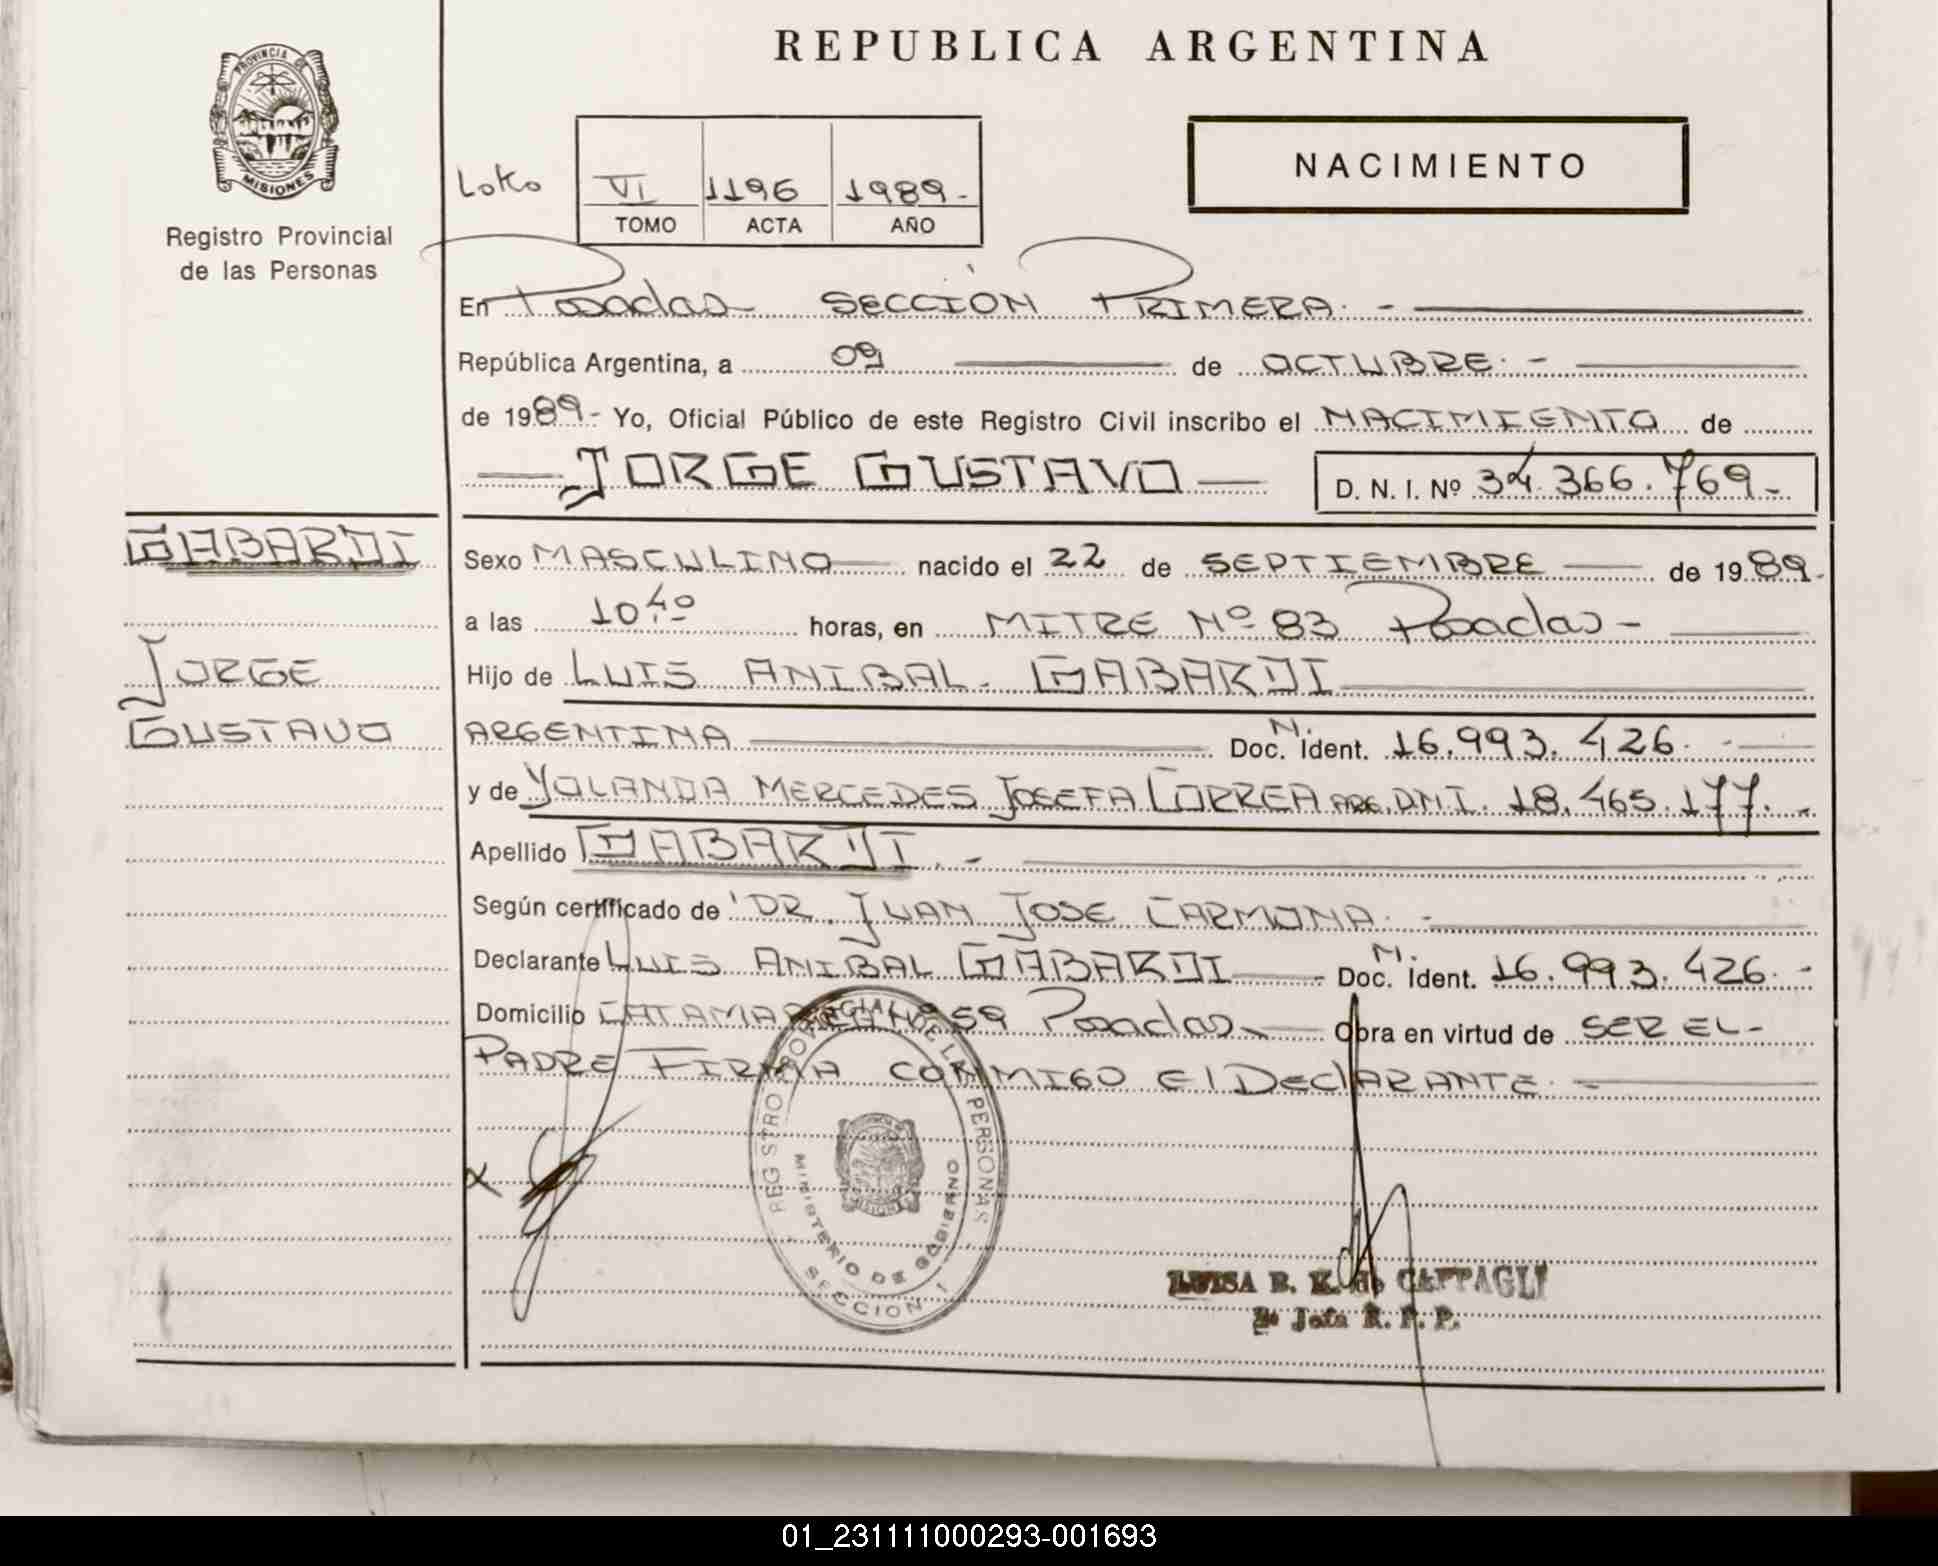 REPUBLICA ARGENTINA
PROVINCIA DE
MISIONES
Registro Provincial
de las Personas
NACIMIENTO
VI 1196 1989-
TOMO ACTA AÑO
En Posadas SECCIÓN PRIMERA.-
República Argentina, a 09 de OCTUBRE.-
de 1989.- Yo, Oficial Público de este Registro Civil inscribo el NACIMIENTO de
JORGE GUSTAVO
D. N. I. Nº 34.366.769-
GABARDI
JORGE
GUSTAVO
Sexo MASCULINO nacido el 22 de SEPTIEMBRE de 1989.
a las 10,40 horas, en MITRE Nº 83 Posadas-
Hijo de LUIS ANIBAL GABARDI
ARGENTINA Doc. N. Ident. 16.993.426.-
y de YOLANDA MERCEDES JOSEFA CORREA ARG. DNI. 18.465.177.-
Apellido GABARDI.-
Según certificado de DR. JUAN JOSE CARMONA.-
Declarante LUIS ANIBAL GABARDI Doc. N. Ident. 16.993.426.-
Domicilio CATAMARCA Nº 59 Posadas- Obra en virtud de SER EL-
PADRE FIRMA CONMIGO El DEClARANTE.
REGISTRO PROVINCIAL DE LAS PERSONAS
MINISTERIO DE GOBIERNO
SECCION 1
MISIONES
LUISA B. K. de CAFFAGLI
2º Jefa R. P. P.
01_231111000293-001693